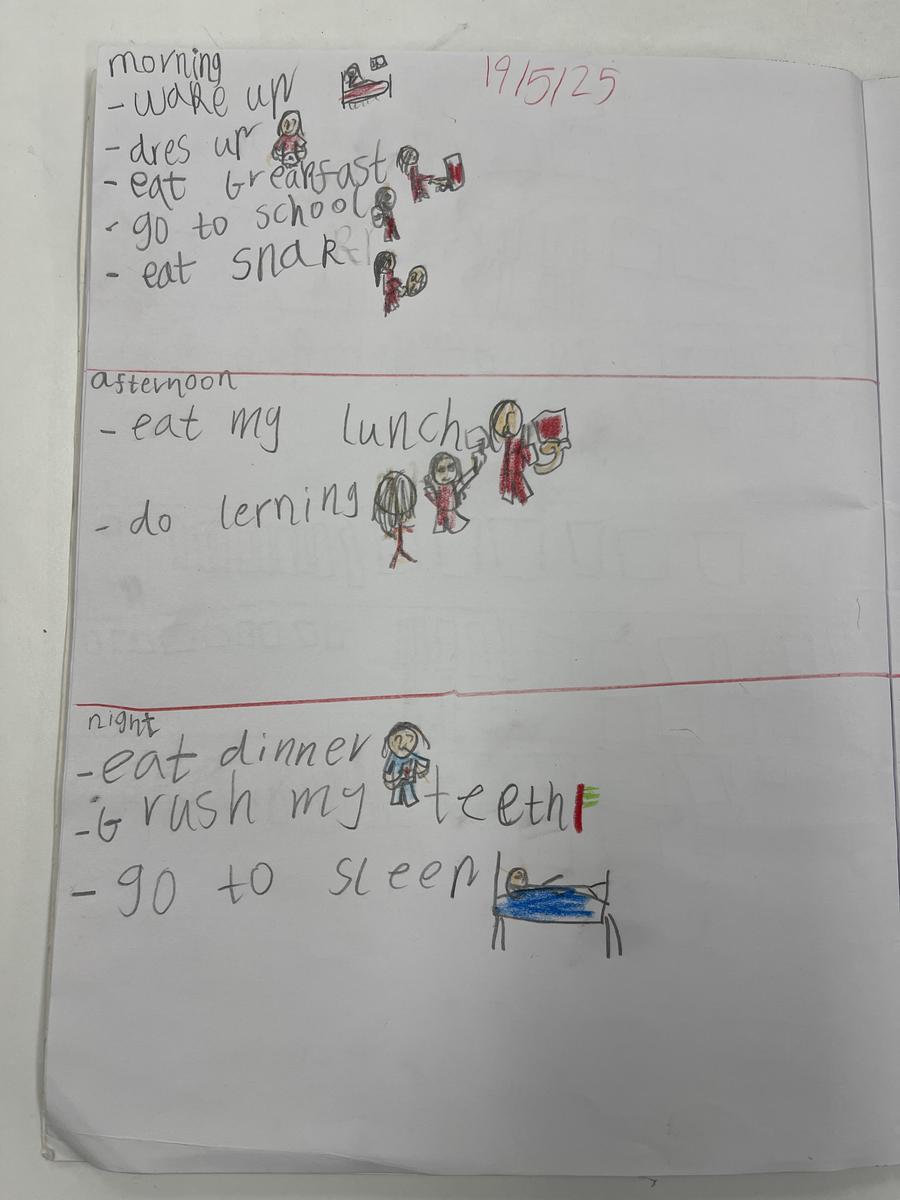 morning
19/5/25
- wake up
- dres up
- eat breakfast
- go to school
- eat snak
afternoon
- eat my lunch
- do lerning
night
- eat dinner
- brush my teeth
- go to sleep